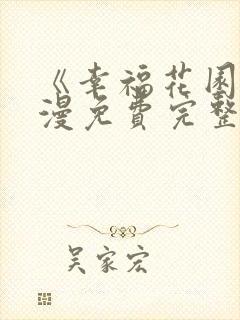 《幸福花园
漫免费完整
吴家宏